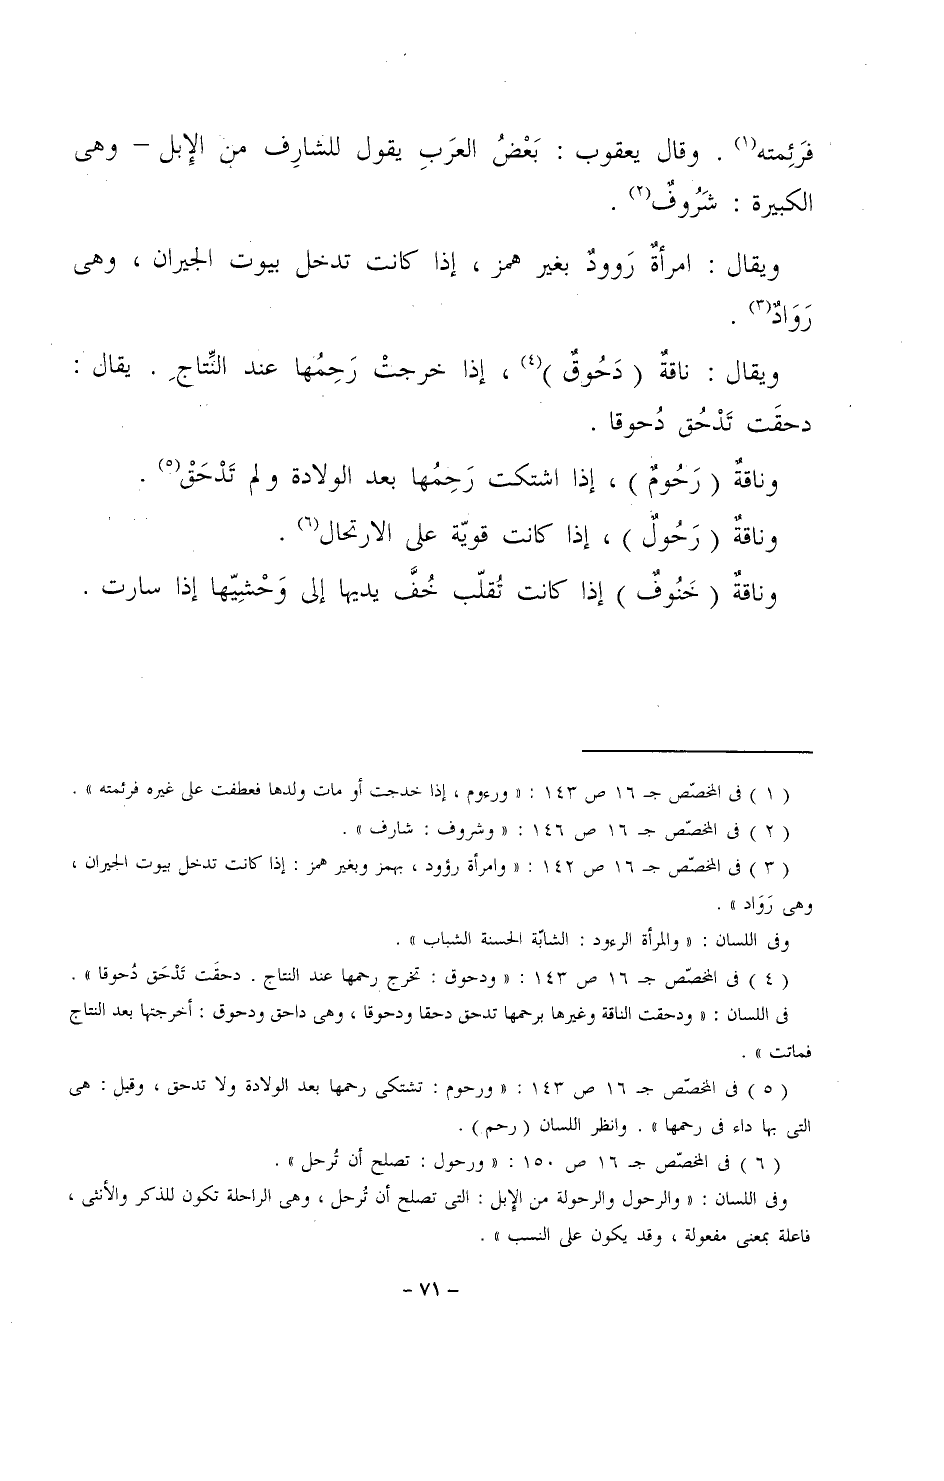 فَرَئِمته(١) . وقال يعقوب : بَعْضُ العرَبِ يقول للشارِف من الإبل – وهى
الكبيرة : شَرُوفٌ(٢) .
ويقال : امرأةٌ رَوودٌ بغير همز ، إذا كانت تدخل بيوت الجيران ، وهى
رَوَادٌ(٣) .
ويقال : ناقةٌ ( دَحُوقٌ )(٤) ، إذا خرجتْ رَحِمُها عند النِّتاجِ . يقال :
دحقَت تَدْحُق دُحوقا .
وناقةٌ ( رَحُومٌ ) ، إذا اشتكت رَحِمُها بعد الولادة ولم تَدْحَقْ(٥) .
وناقةٌ ( رَحُولٌ ) ، إذا كانت قويّة على الارتحال(٦) .
وناقةٌ ( خَنُوفٌ ) إذا كانت تُقلّب خُفَّ يديها إلى وَحْشيّها إذا سارت .
( ١ ) فى المخصّص جـ ١٦ ص ١٤٣ : « ورءوم ، إذا خدجت أو مات ولدها فعطفت على غيره فرئمته » .
( ٢ ) فى المخصّص جـ ١٦ ص ١٤٦ : « وشروف : شارف » .
( ٣ ) فى المخصّص جـ ١٦ ص ١٤٢ : « وامرأة رؤود ، بهمز وبغير همز : إذا كانت تدخل بيوت الجيران ،
وهى رَوَاد » .
وفى اللسان : « والمرأة الرءود : الشابّة الحسنة الشباب » .
( ٤ ) فى المخصّص جـ ١٦ ص ١٤٣ : « ودحوق : تخرج رحمها عند النتاج . دحقَت تَدْحَق دُحوقا » .
فى اللسان : « ودحقت الناقة وغيرها برحمها تدحق دحقا ودحوقا ، وهى داحق ودحوق : أخرجتها بعد النتاج
فماتت » .
( ٥ ) فى المخصّص جـ ١٦ ص ١٤٣ : « ورحوم : تشتكى رحمها بعد الولادة ولا تدحق ، وقيل : هى
التى بها داء فى رحمها » . وانظر اللسان ( رحم ) .
( ٦ ) فى المخصّص جـ ١٦ ص ١٥٠ : « ورحول : تصلح أن تُرحل » .
وفى اللسان : « والرحول والرحولة من الإبل : التى تصلح أن تُرحل ، وهى الراحلة تكون للذكر والأنثى ،
فاعلة بمعنى مفعولة ، وقد يكون على النسب » .
– ٧١ –